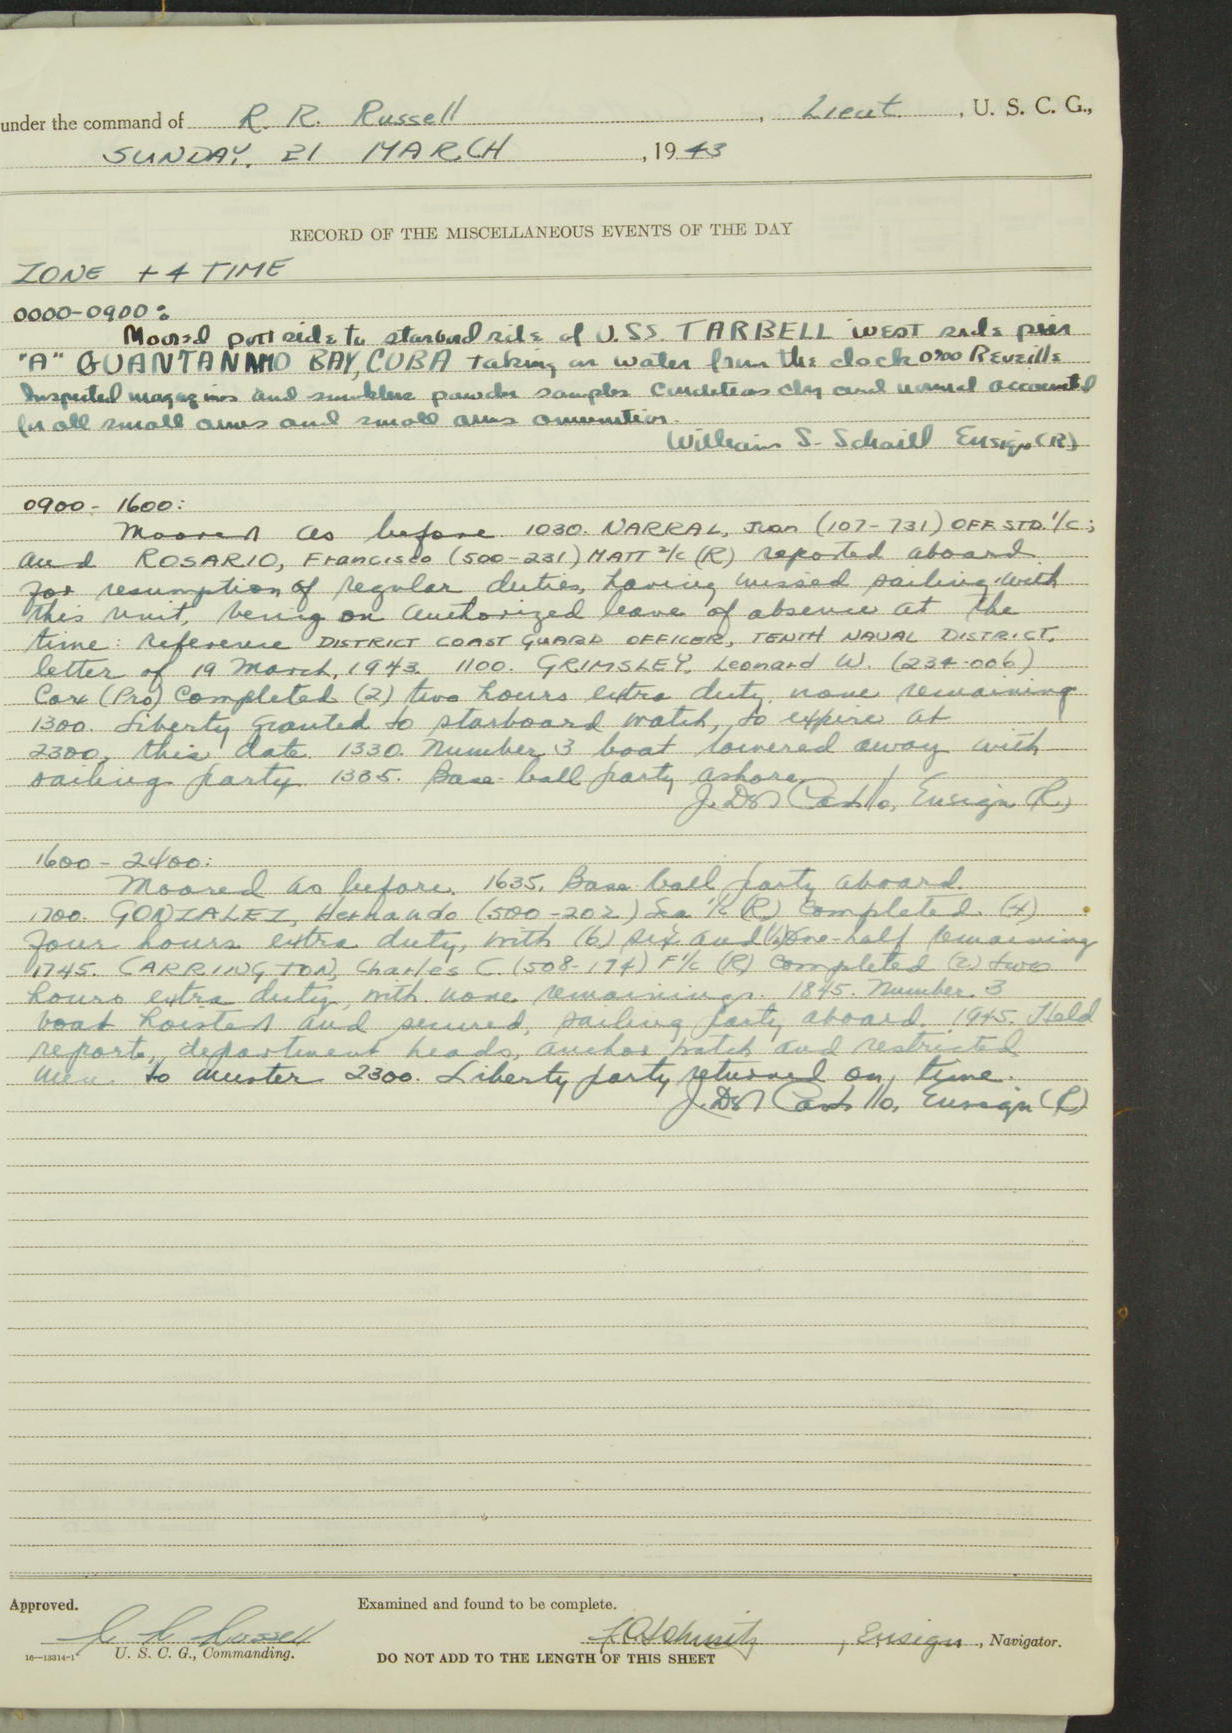 under the command of R. R. Russell, Lieut., U. S. C. G.,
SUNDAY, 21 MARCH, 1943
RECORD OF THE MISCELLANEOUS EVENTS OF THE DAY
ZONE + 4 TIME
0000-0900:
Moored port side to starbord side of U.S.S. TARBELL west side pier
"A" GUANTANMO BAY, CUBA taking on water from the dock 0700 Reveille
Inspected magazines and smokless powder samples Conditions dry and normal accounted
for all small arms and small arms ammunition.
William S. Schaill Ensign (R)
0900 - 1600:
Moored as before 1030. NARRAL, Juan (107-731) OFF STD. 1/c;
and ROSARIO, Francisco (500-231) MATT 2/c (R) reported aboard
for resumption of regular duties, having missed sailing with
this unit, being on authorized leave of absence at the
time: reference DISTRICT COAST GUARD OFFICER, TENTH NAVAL DISTRICT,
letter of 19 March, 1943. 1100. GRIMSLEY, Leonard W. (234-006)
Cox (Pro) Completed (2) two hours extra duty none remaining
1300. Liberty granted to starboard watch, to expire at
2300, this date. 1330. Number 3 boat lowered away with
sailing party. 1305. Base-ball party ashore.
J. Del Castillo, Ensign (R)
1600 - 2400:
Moored as before. 1635. Base-ball party aboard.
1700. GONZALEZ, Hernando (500-202) Sea 1/c (R) Completed (4)
four hours extra duty, with (6) six and (½) one-half remaining
1745. CARRINGTON, Charles C. (508-174) F 1/c (R) Completed (2) two
hours extra duty, with none remaining. 1845. Number 3
boat hoisted and secured, sailing party aboard. 1945. Held
reports, department heads, anchor watch and restricted
men to muster 2300. Liberty party returned on time.
J. Del Castillo, Ensign (R)
Approved. Examined and found to be complete.
R R Russell
, Ensign, Navigator.
16—13314-1 U. S. C. G., Commanding.
DO NOT ADD TO THE LENGTH OF THIS SHEET